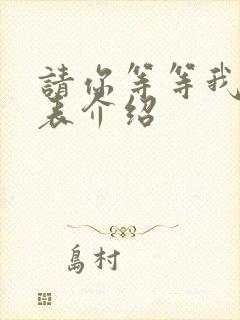 請你等等我
表介绍
島村